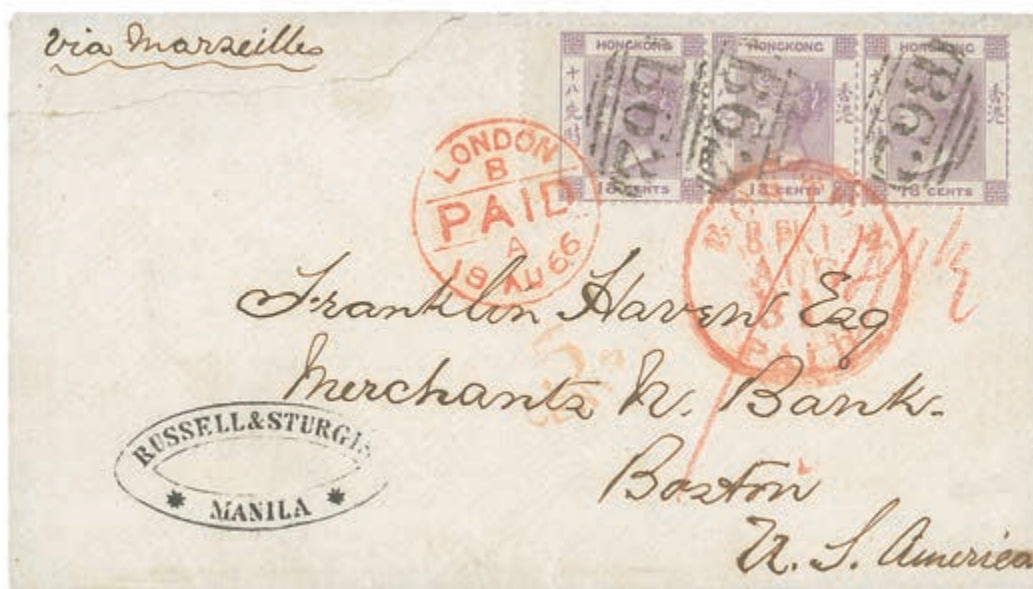 via Marseilles
HONGKONG
十八先時
18 CENTS
B62
HONGKONG
香港
18 CENTS
B62
HONGKONG
香港
18 CENTS
B62
LONDON
B
PAID
A
18 AU 66
PAID
Franklin Haven Esq
Merchants N. Bank.
Boston
U. S. America
RUSSELL & STURGIS
MANILA